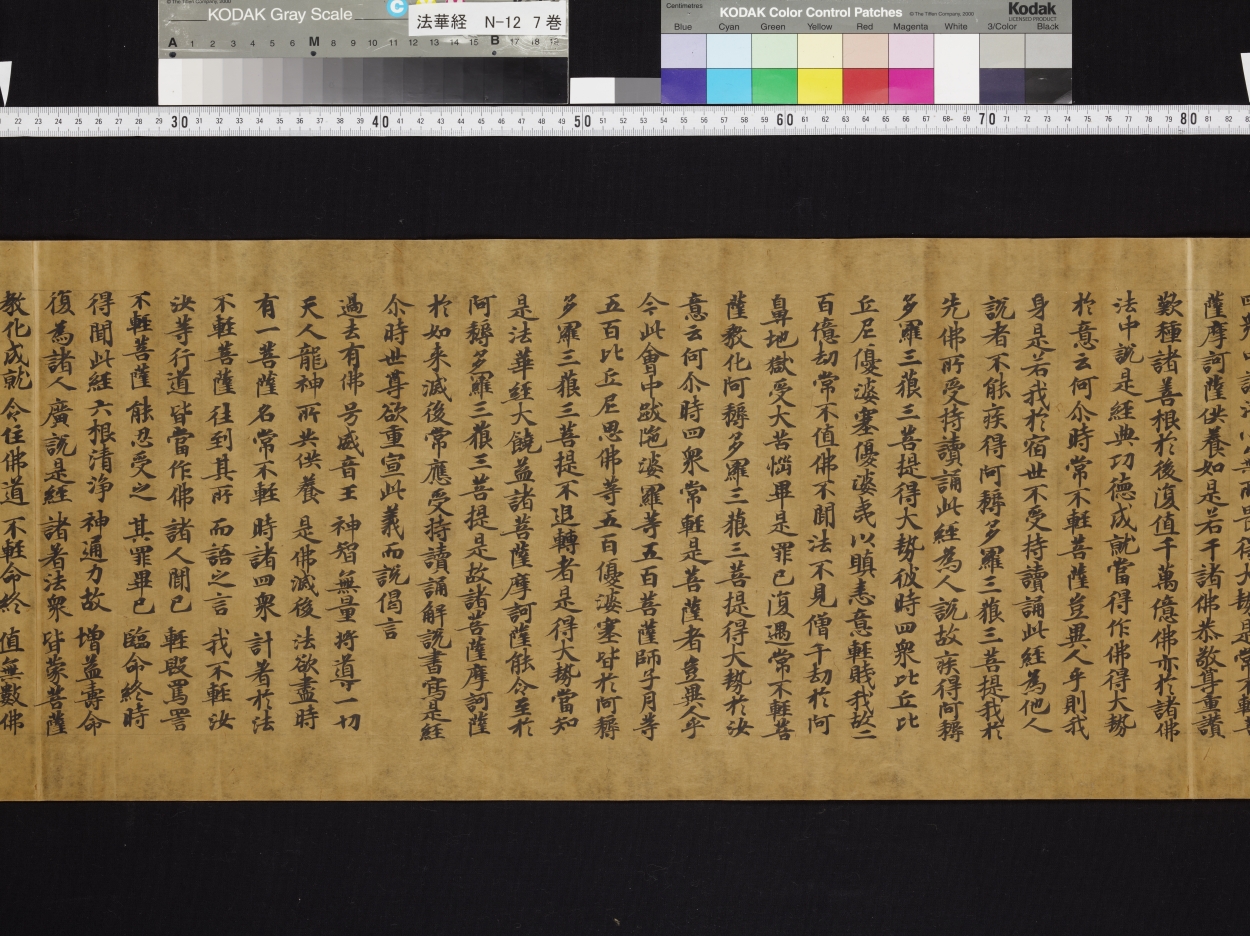 KODAK Gray Scale
法華経 N-12 7巻
A 1 2 3 4 5 6 M 8 9 10 11 12 13 14 15 B 17 18 19
Centimetres
KODAK Color Control Patches
© The Tiffen Company, 2000
Kodak
LICENSED PRODUCT
Blue Cyan Green Yellow Red Magenta White 3/Color Black
22 23 24 25 26 27 28 29 30 31 32 33 34 35 36 37 38 39 40 41 42 43 44 45 46 47 48 49 50 51 52 53 54 55 56 57 58 59 60 61 62 63 64 65 66 67 68 69 70 71 72 73 74 75 76 77 78 79 80 81 82
薩摩訶薩供養如是若干諸佛恭敬尊重讚
歎種諸善根於後復值千萬億佛亦於諸佛
法中說是經典功德成就當得作佛得大勢
於意云何尒時常不輕菩薩豈異人乎則我
身是若我於宿世不受持讀誦此經為他人
說者不能疾得阿耨多羅三藐三菩提我於
先佛所受持讀誦此經為人說故疾得阿耨
多羅三藐三菩提得大勢彼時四衆比丘比
丘尼優婆塞優婆夷以瞋恚意輕賤我故二
百億劫常不值佛不聞法不見僧千劫於阿
鼻地獄受大苦惱畢是罪已復遇常不輕菩
薩教化阿耨多羅三藐三菩提得大勢於汝
意云何尒時四衆常輕是菩薩者豈異人乎
今此會中跋陁婆羅等五百菩薩師子月等
五百比丘尼思佛等五百優婆塞皆於阿耨
多羅三藐三菩提不退轉者是得大勢當知
是法華經大饒益諸菩薩摩訶薩能令至於
阿耨多羅三藐三菩提是故諸菩薩摩訶薩
於如来滅後常應受持讀誦解說書寫是經
尒時世尊欲重宣此義而說偈言
過去有佛 号威音王 神智無量 將導一切
天人龍神 所共供養 是佛滅後 法欲盡時
有一菩薩 名常不輕 時諸四衆 計著於法
不輕菩薩 往到其所 而語之言 我不輕汝
汝等行道 皆當作佛 諸人聞已 輕毀罵詈
不輕菩薩 能忍受之 其罪畢已 臨命終時
得聞此經 六根清淨 神通力故 增益壽命
復為諸人 廣說是經 諸著法衆 皆蒙菩薩
教化成就 令住佛道 不輕命終 值無數佛